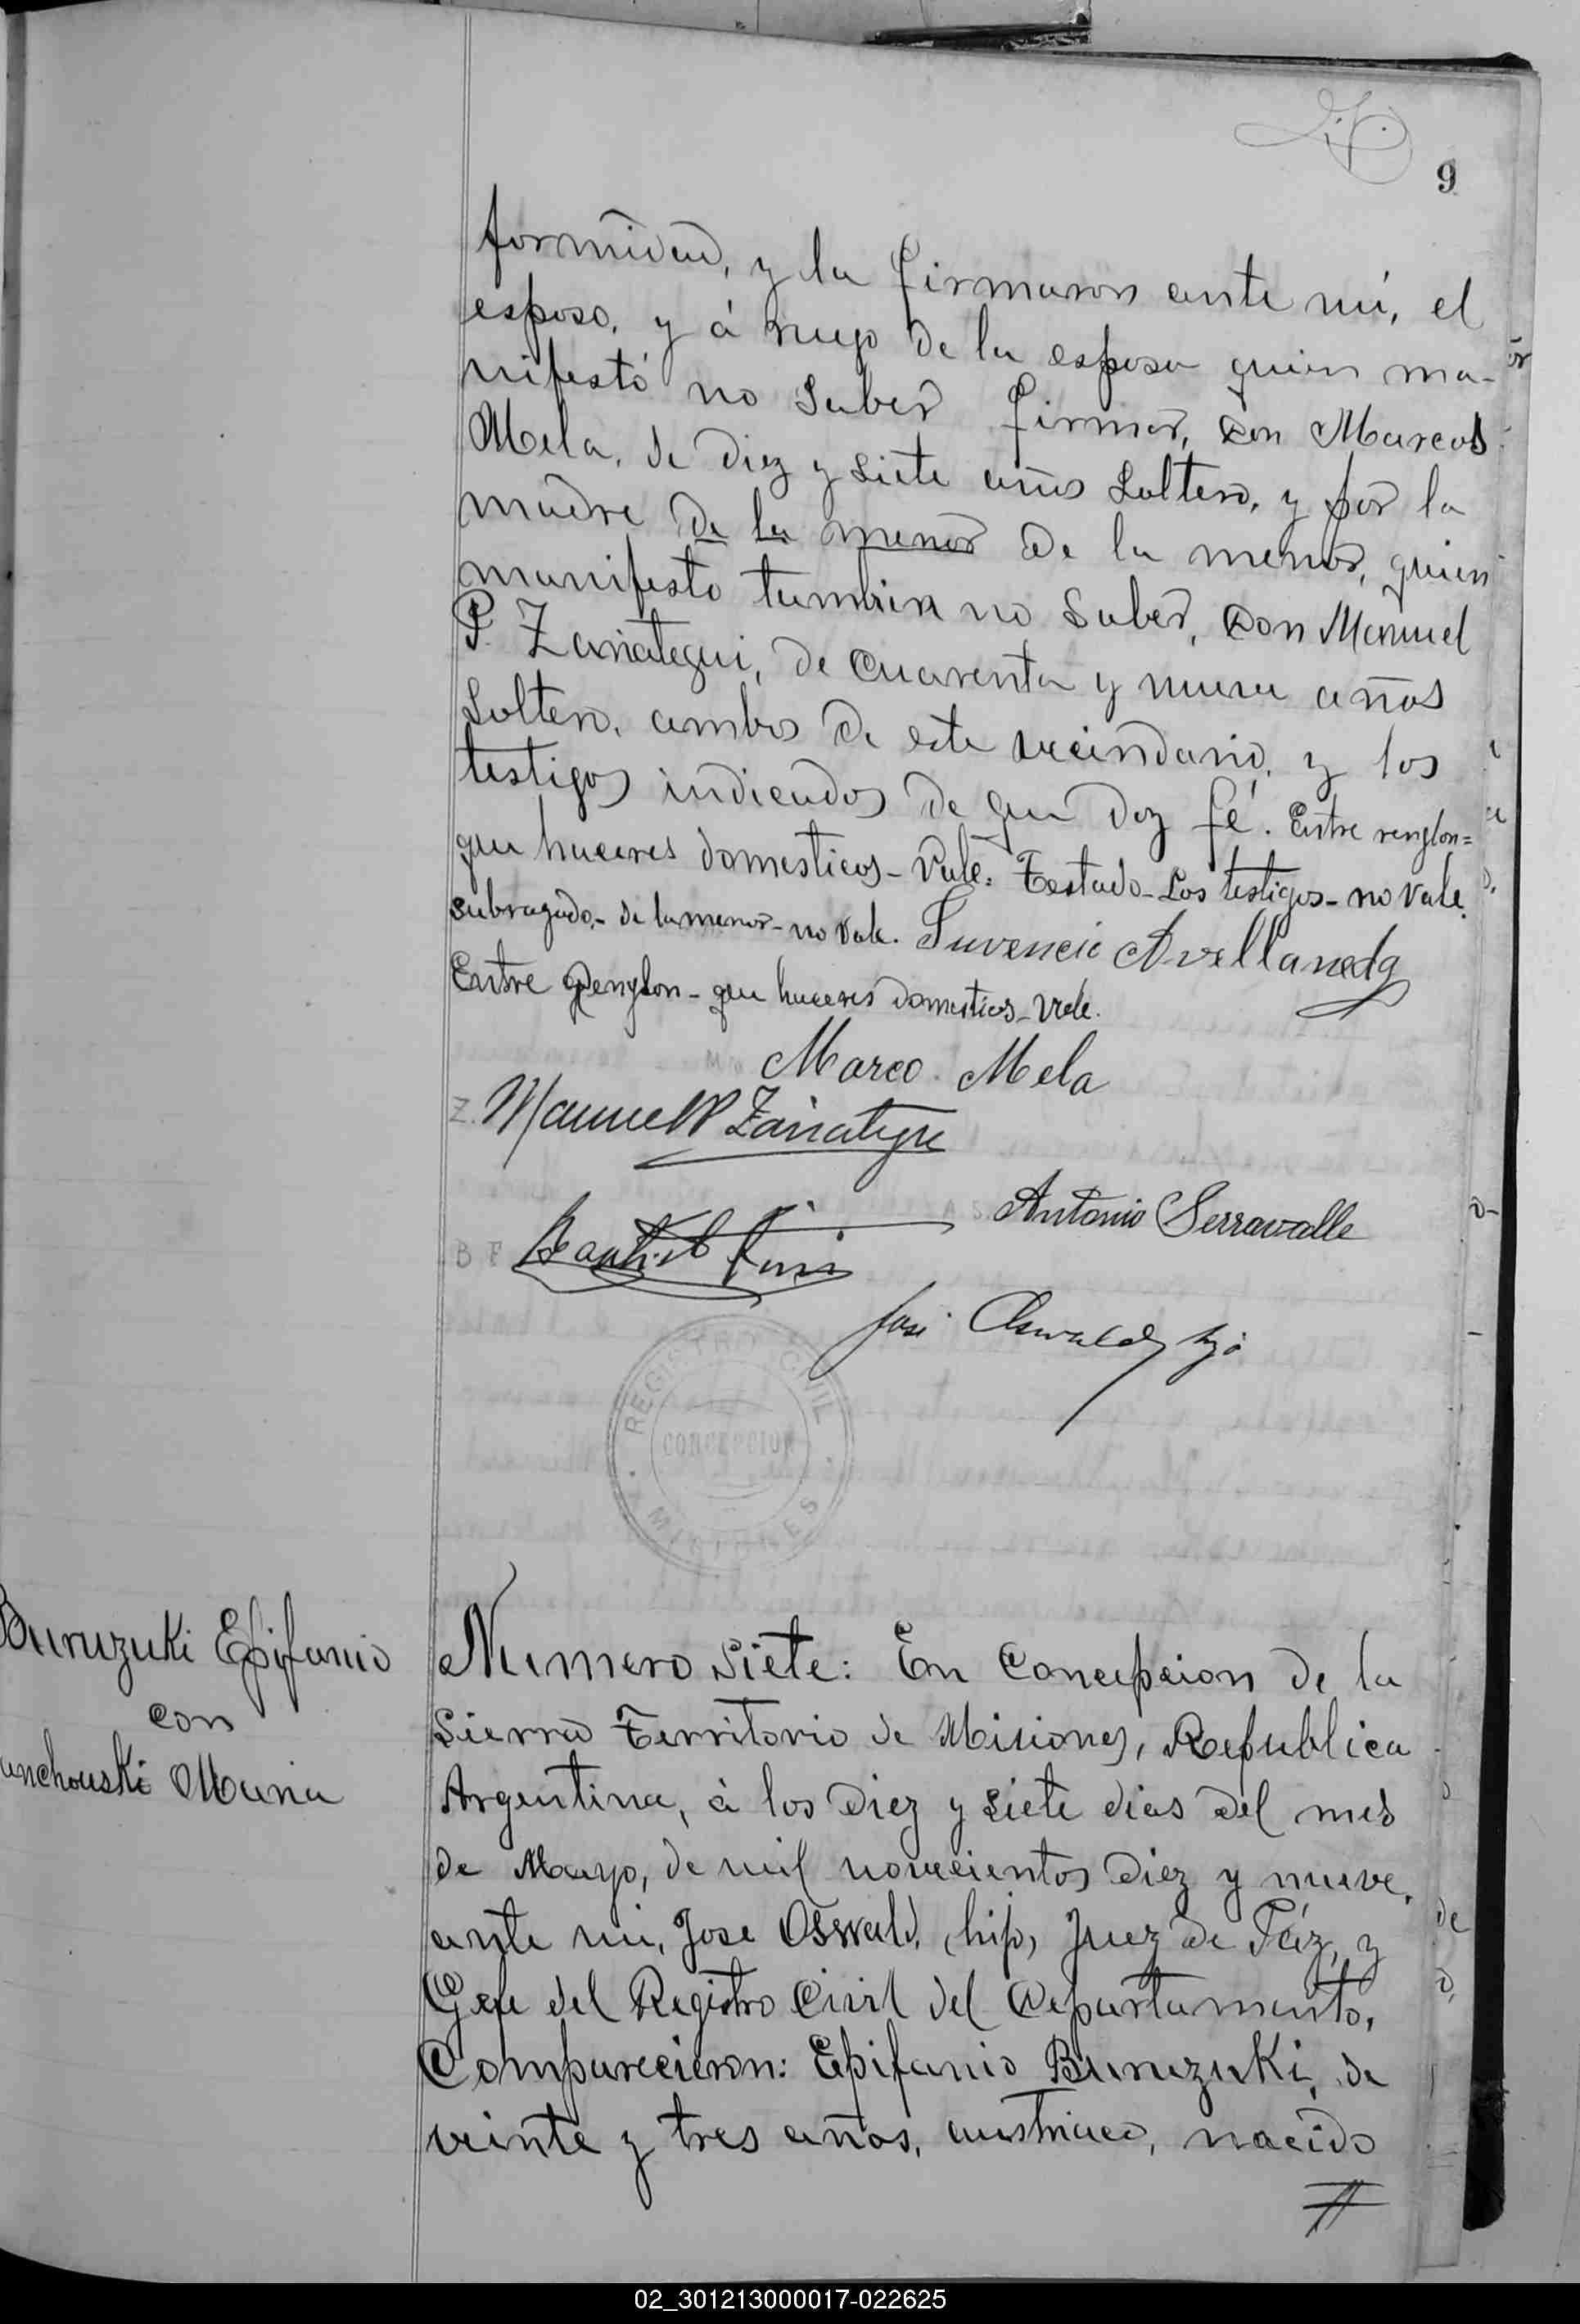 9
formidad, y la firmaron ante mí, el
esposo, y á ruego de la esposa quien ma-
nifestó no saber firmar, Don Marcos
Mela, de diez y siete años soltero, y por la
madre de la menor de la menor, quien
manifesto tambien no saber, Don Manuel
P. Zariategui, de cuarenta y nueve años
soltero, ambos de este vecindario, y los
testigos indicados de que doy fé. Entre renglon=
que haceres domesticos - Vale. Testado - Los testigos - no vale.
subrayado - de la menor - no vale. Juvencio Avellaneda
Entre Renglon - que haceres domesticos - Vale.
Marco Mela
Z. Manuel P Zariategui
Antonio Serravalle
B F Bautista
José Oswald hijo
REGISTRO CIVIL
CONCEPCION
MISIONES
Buruzuki Epifanio
con
unchouski Maria
Numero siete: En Concepcion de la
Sierra Territorio de Misiones, Republica
Argentina, á los diez y siete dias del mes
de Mayo, de mil novecientos diez y nueve,
ante mi, Jose Oswald, (hijo) Juez de Páz, y
Gefe del Registro Civil del Departamento,
Comparecieron: Epifanio Buruzuki, de
veinte y tres años, austriaco, nacido
02_301213000017-022625